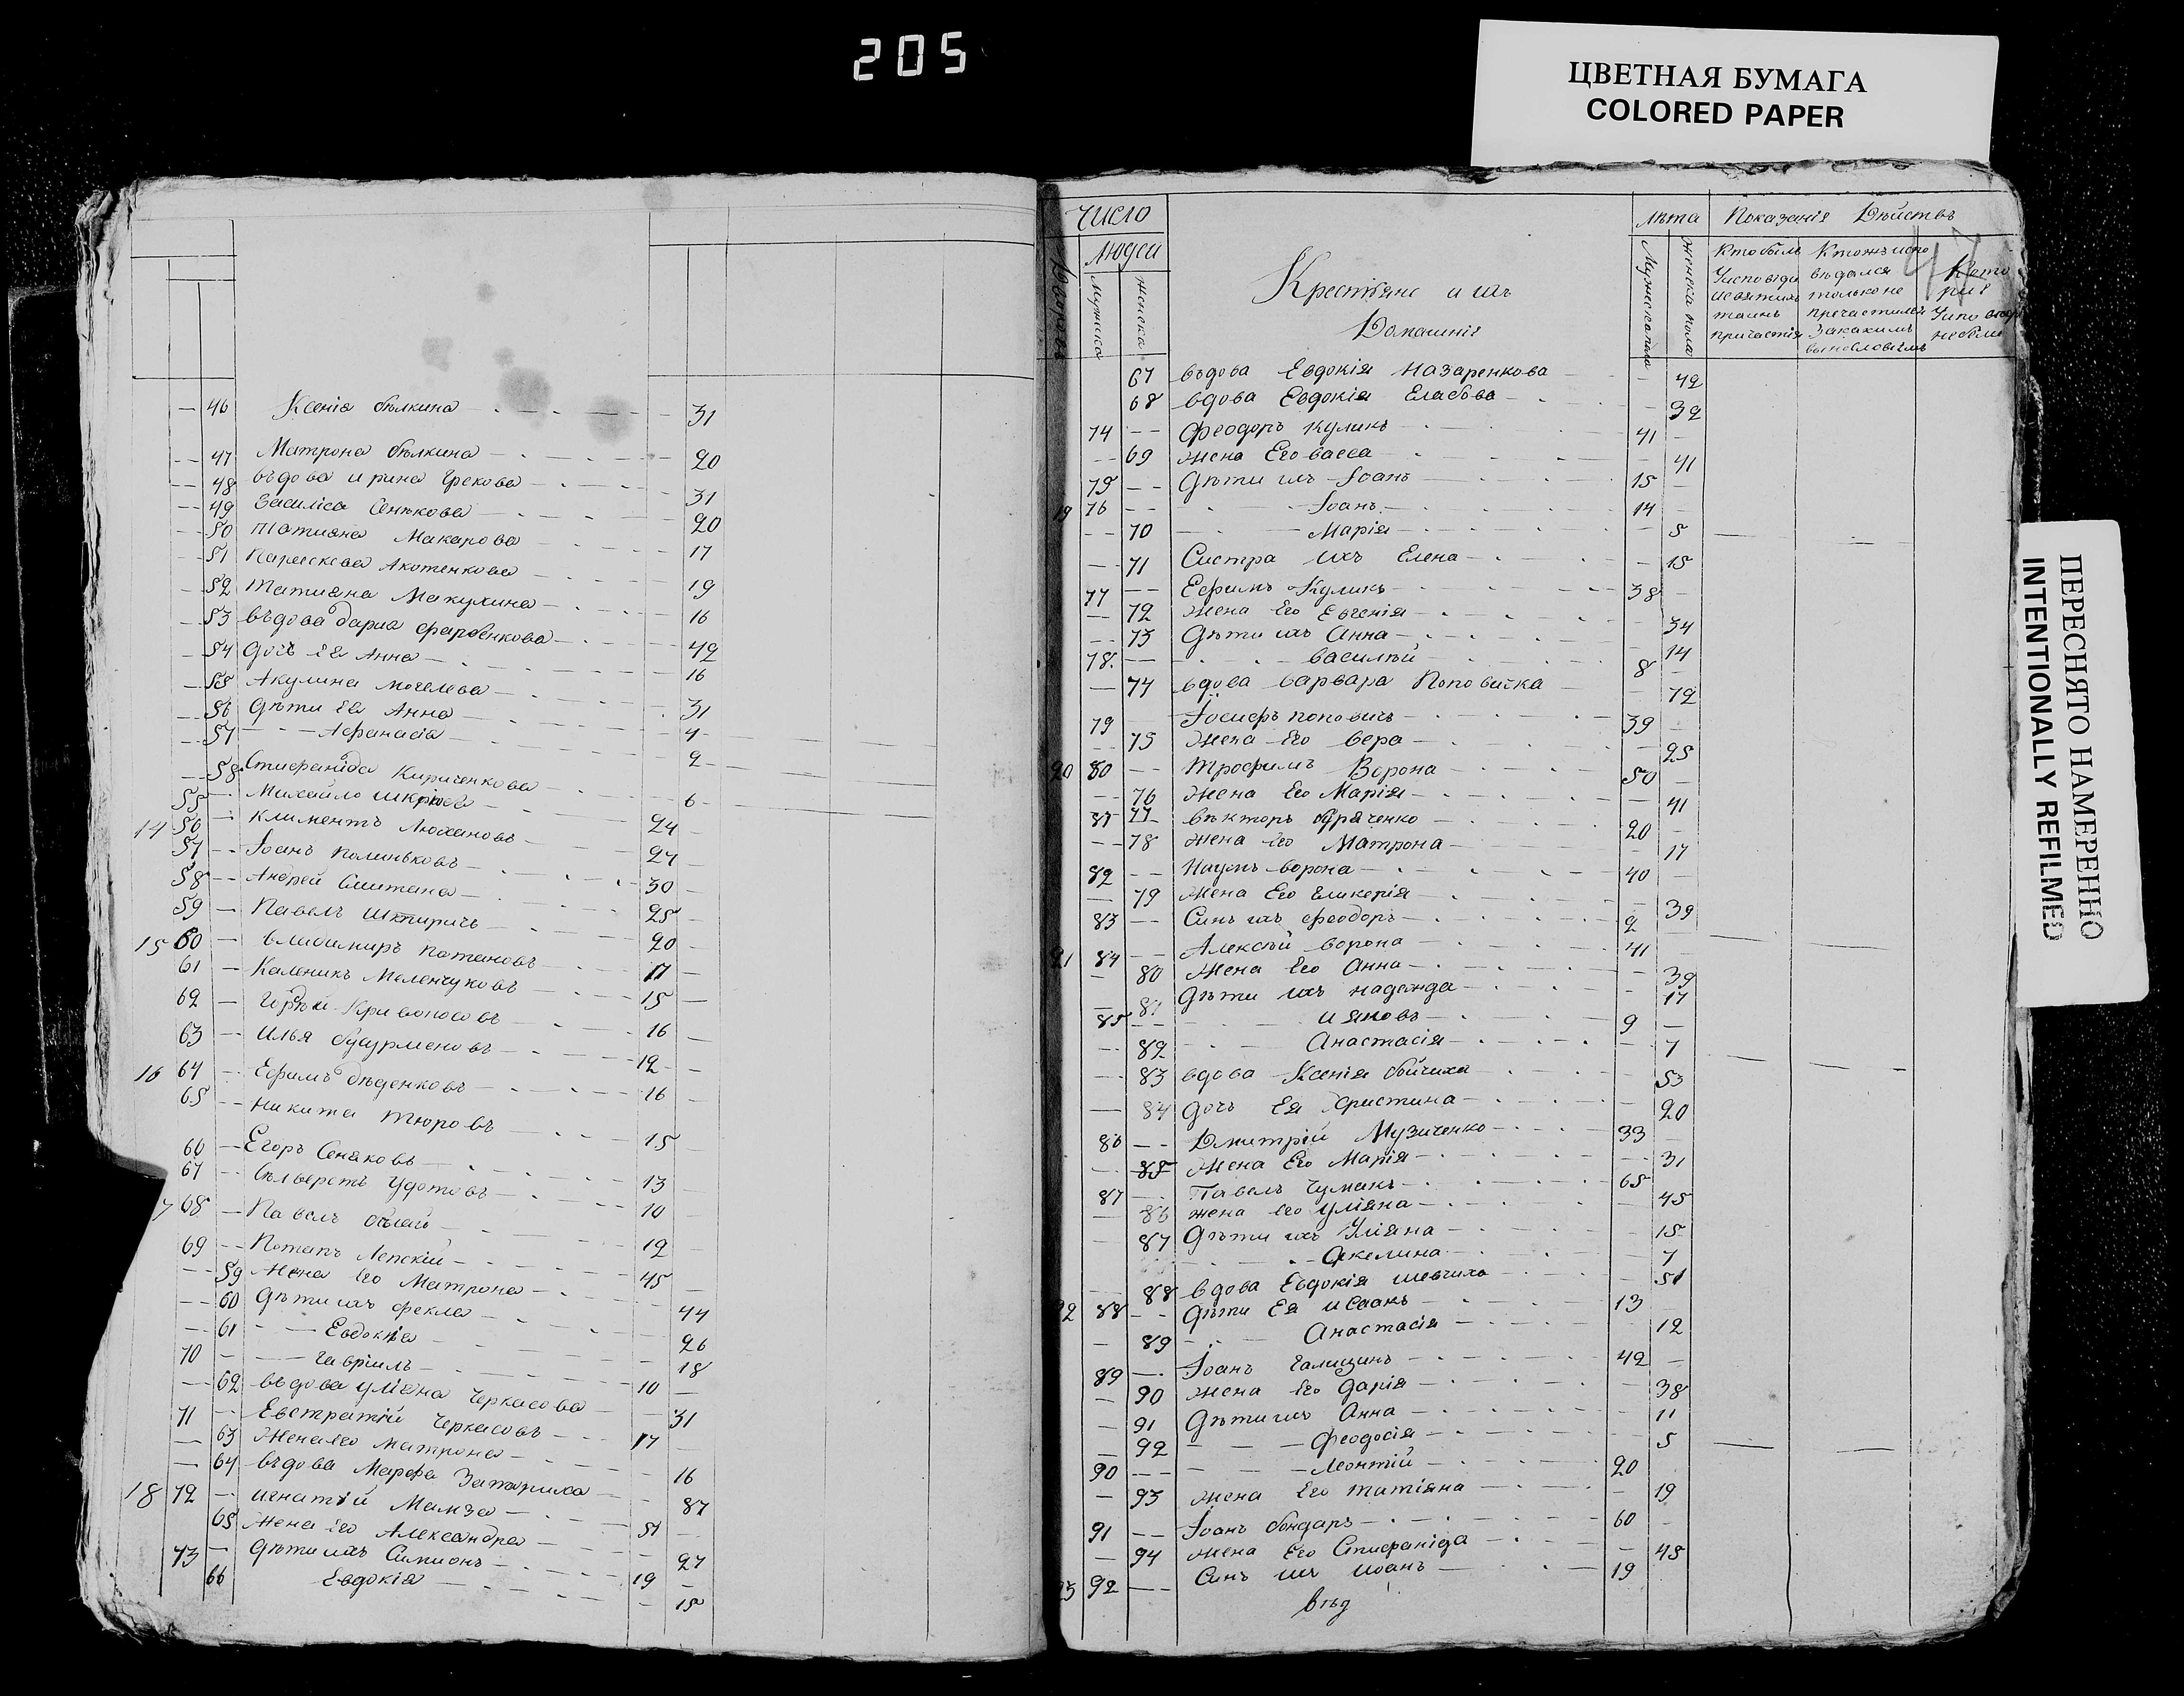 205
ЦВЕТНАЯ БУМАГА
COLORED PAPER
46 Ксенія бѣлкина 31
47 Матрона бѣлкина 20
48 въдова ирина Грекова 31
49 Василіса Сенькова 20
50 Татияна Макарова 17
51 Параскева Акотенкова 19
52 Татияна Макухина 16
53 въдова дариа 42
54 дочь Ея Анна 16
55 Акулина 31
56 Дѣти Ея Анна 4
57 Афанасіа 2
58 Стиефаніда Кириченкова 6
55 Михаило 24
14 56 климентъ 27
57 Іоанъ 30
58 Андрей Сметана 25
59 Павелъ 20
15 60 владимиръ Потаповъ 17
61 Каленикъ Меленчуковъ 15
62 Кривоносовъ 16
63 илья 12
16 64 Ефимъ бѣденковъ 16
65 Никита Тюровъ 15
66 Егоръ Сенаковъ 13
67 Удотовъ 10
7 68 Павелъ 12
69 Потапъ Лепский 45
59 Жена его Матрона 44
60 Дѣти ихъ фекла 26
61 Евдокія 18
70 Гавріилъ 10
62 въдова улияна Черкасова 31
71 Евстратий Черкасовъ 17
63 Жена его Матрона 16
64 въдова Марфа 87
18 72 игнатій Мамза 51
65 Жена его Александра 27
73 Дѣти ихъ Симионъ 19
66 Евдокія 15
число
людей
Мужска
женска
Крестьяне и ихъ
Домашніе
лѣта Показанія Дѣйствъ
Мужеска пола
женска пола
67 въдова Евдокія Назаренкова 42
68 вдова Евдокія 32
74 феодоръ куликъ 41
69 жена Его васса 41
75 Дѣти ихъ Іоанъ 15
19 76 Іоанъ 14
70 Марія 5
71 Систра ихъ Елена 15
77 Ефимъ Куликъ 38
72 жена Его Евгенія 34
73 Дѣти ихъ Анна 14
78 василѣй 8
74 вдова варвара Поповичка 72
79 Іосифъ поповичъ 39
75 Жена Его вера 25
20 80 Трофимъ Ворона 50
76 Жена Его Марія 41
81 77 въкторъ 20
78 Жена его Матрона 17
82 Наумъ ворона 40
79 Жена Его Гликерія 39
83 Синъ ихъ феодоръ 2
21 84 Алексѣй ворона 41
80 Жена Его Анна 39
81 Дѣти ихъ надежда 17
85 и яковъ 9
82 Анастасія 7
83 вдова Ксенія бойчиха 53
84 дочь Ея Христина 20
86 Дмитрій Музиченко 33
85 Жена Его Марія 31
87 Павелъ Чумакъ 65
86 жена его уліяна 45
87 Дѣти ихъ Уліяна 15
Акелина 7
88 вдова Евдокія шевчиха 51
22 88 Дѣти Ея исаакъ 13
89 Анастасія 12
89 Іоанъ Галицинъ 42
90 жена Его дарія 38
91 Дѣти ихъ Анна 11
92 феодосія 5
90 леонтій 20
93 жена Его татіяна 19
91 Іоанъ бондаръ 60
94 жена Его Стиефаніда 45
23 92 Синъ ихъ иоанъ 19
въд
ПЕРЕСНЯТО НАМЕРЕННО
INTENTIONALLY REFILMED